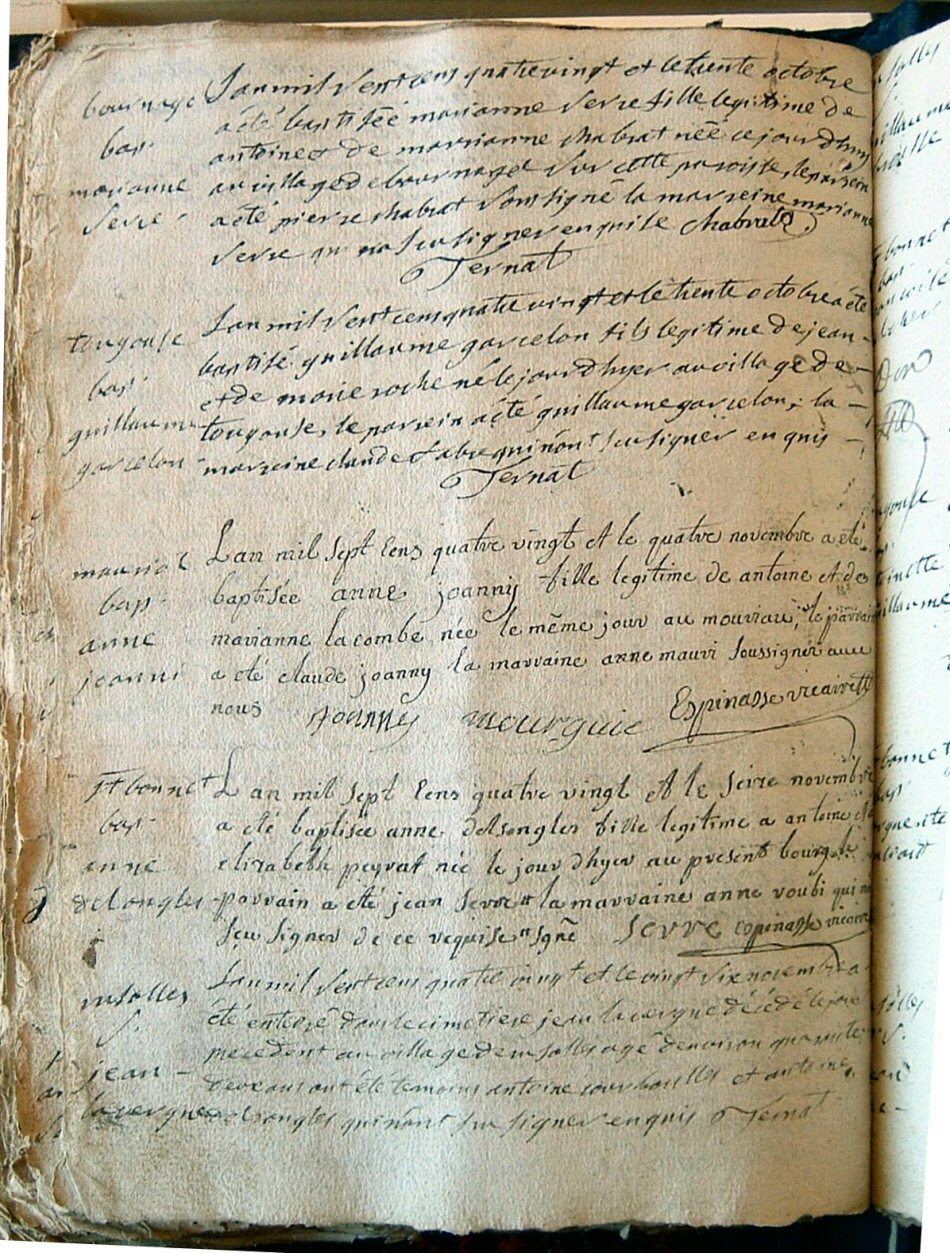 bournage
bap.
marianne
serre
Lan mil sept cens quatre vingt et le trente octobre
a été baptisée marianne serre fille legitime de
antoine et de marianne chabrat néé ce jourdhuy
au village de bournage sur cette paroisse, le parein
a été pierre chabrat soussigné la marreine marianne
serre qui na su signer enquise Chabrat
Ternat
tougouse
bap.
guillaume
garcelon
Lan mil sept cens quatre vingt et le trente octobre a été
baptisé guillaume garcelon fils legitime de jean
et de marie roche né le jour dhyer au village de
tougouse, le parrein a été guillaume garcelon, la
marreine claude fabre qui nont su signer enquis
Ternat
bap.
anne
joanni
Lan mil sept Cens quatre vingt et le quatre novembre a été
baptisée anne joanny fille legitime de antoine et de
marianne lacombe née le même jour au mouriau, le parrain
a été claude joanny la marraine anne mauri soussigner avec
nous Joanny mourguie Espinasse vicaire
St bonnet
bap.
anne
delsongles
Lan mil sept Cens quatre vingt et le seize novembre
a été baptisée anne delsongles fille legitime a antoine et
elizabelh peyrat née le jour dhyer au present bourg le
parrain a été jean serre et la marraine anne roubi qui na
seu signer de ce requise signé Serre espinasse vicaire
jean
lavergne
Lan mil sept cens quatre vingt et le vingt six novembre a
été enterré dans le cimetiere jean lavergne décédé le jour
precedent au village de agé denviron quarante
deux ans ont été temoins antoine et antoine
delsongles qui nont su signer enquis Ternat